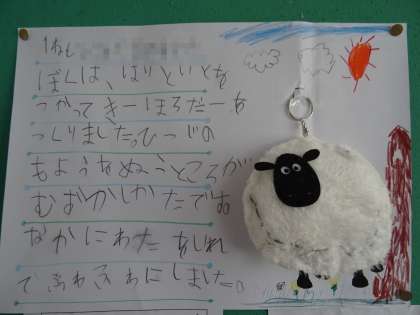 1ねん
ぼくは、はりといとを
つかってきーほるだーを
つくりました。ひつじの
もようをぬうところが
むずかしかたです。
なかにわたをいれ
てふわふわにしました。